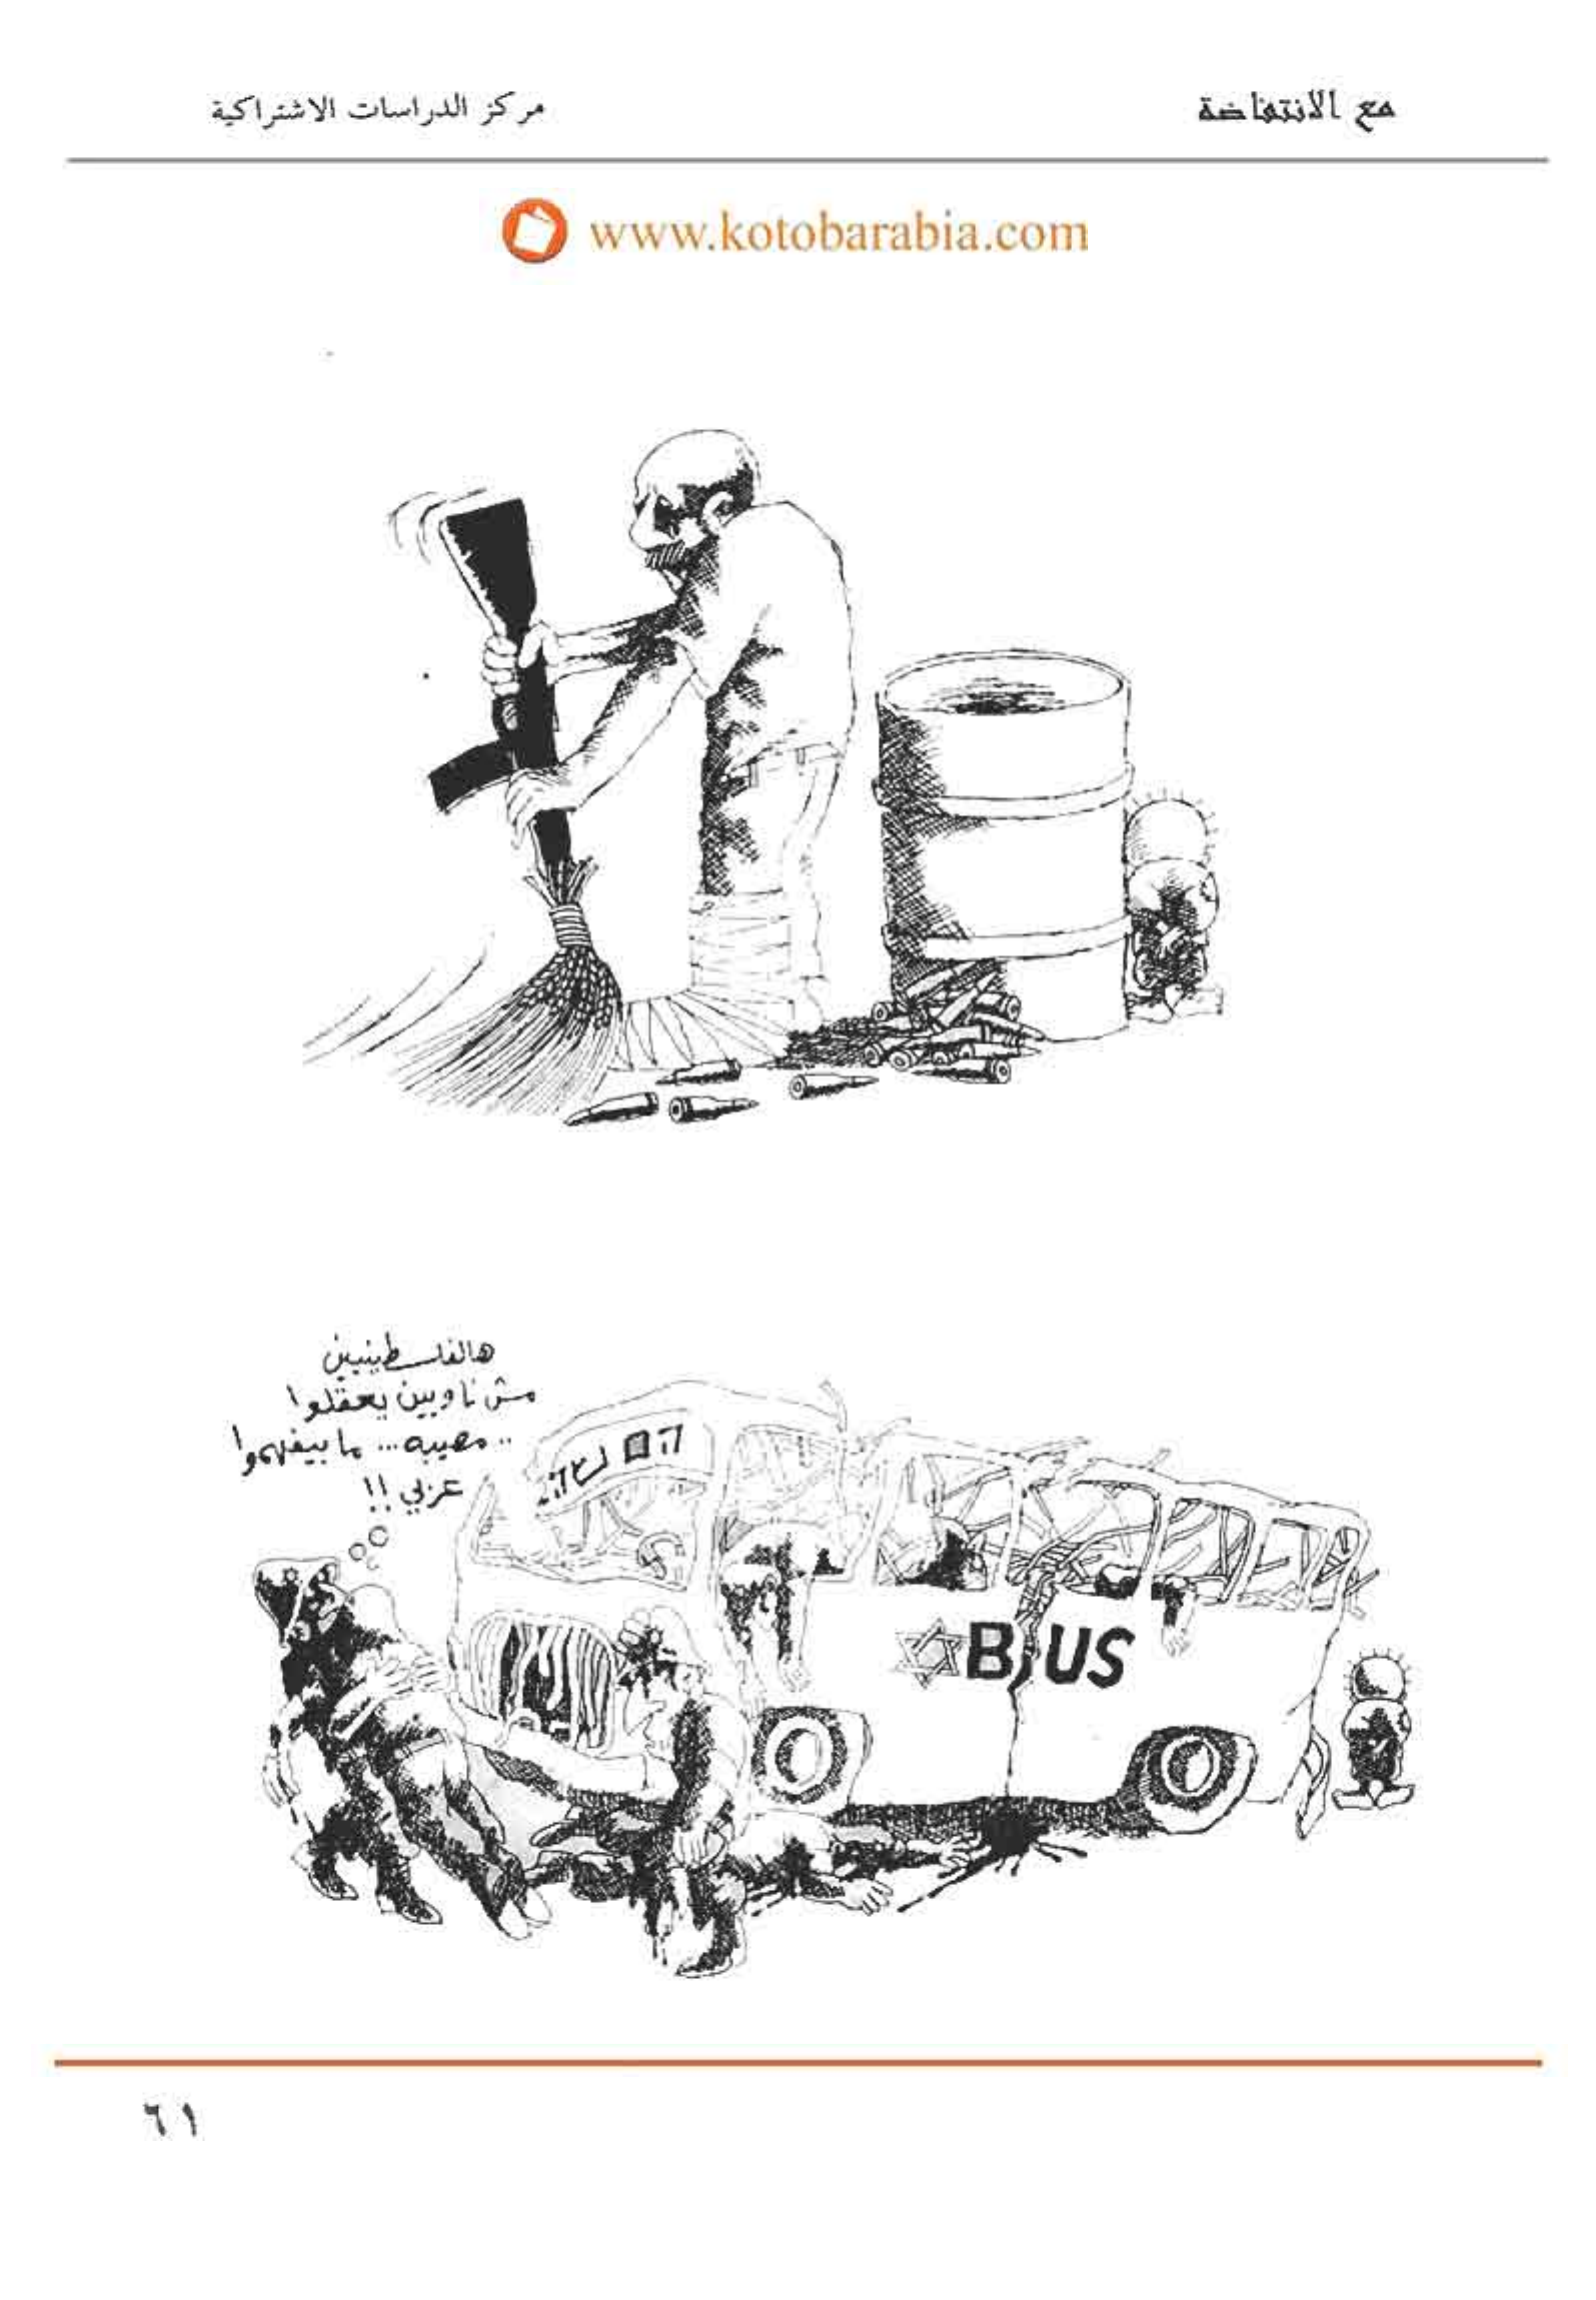 مع الانتفاضة
مركز الدراسات الاشتراكية
www.kotobarabia.com
هالفلسطينيين
مش ناويين يعقلوا
.. مصيبه ... ما بيفهموا
عربي !!
BUS
٦١